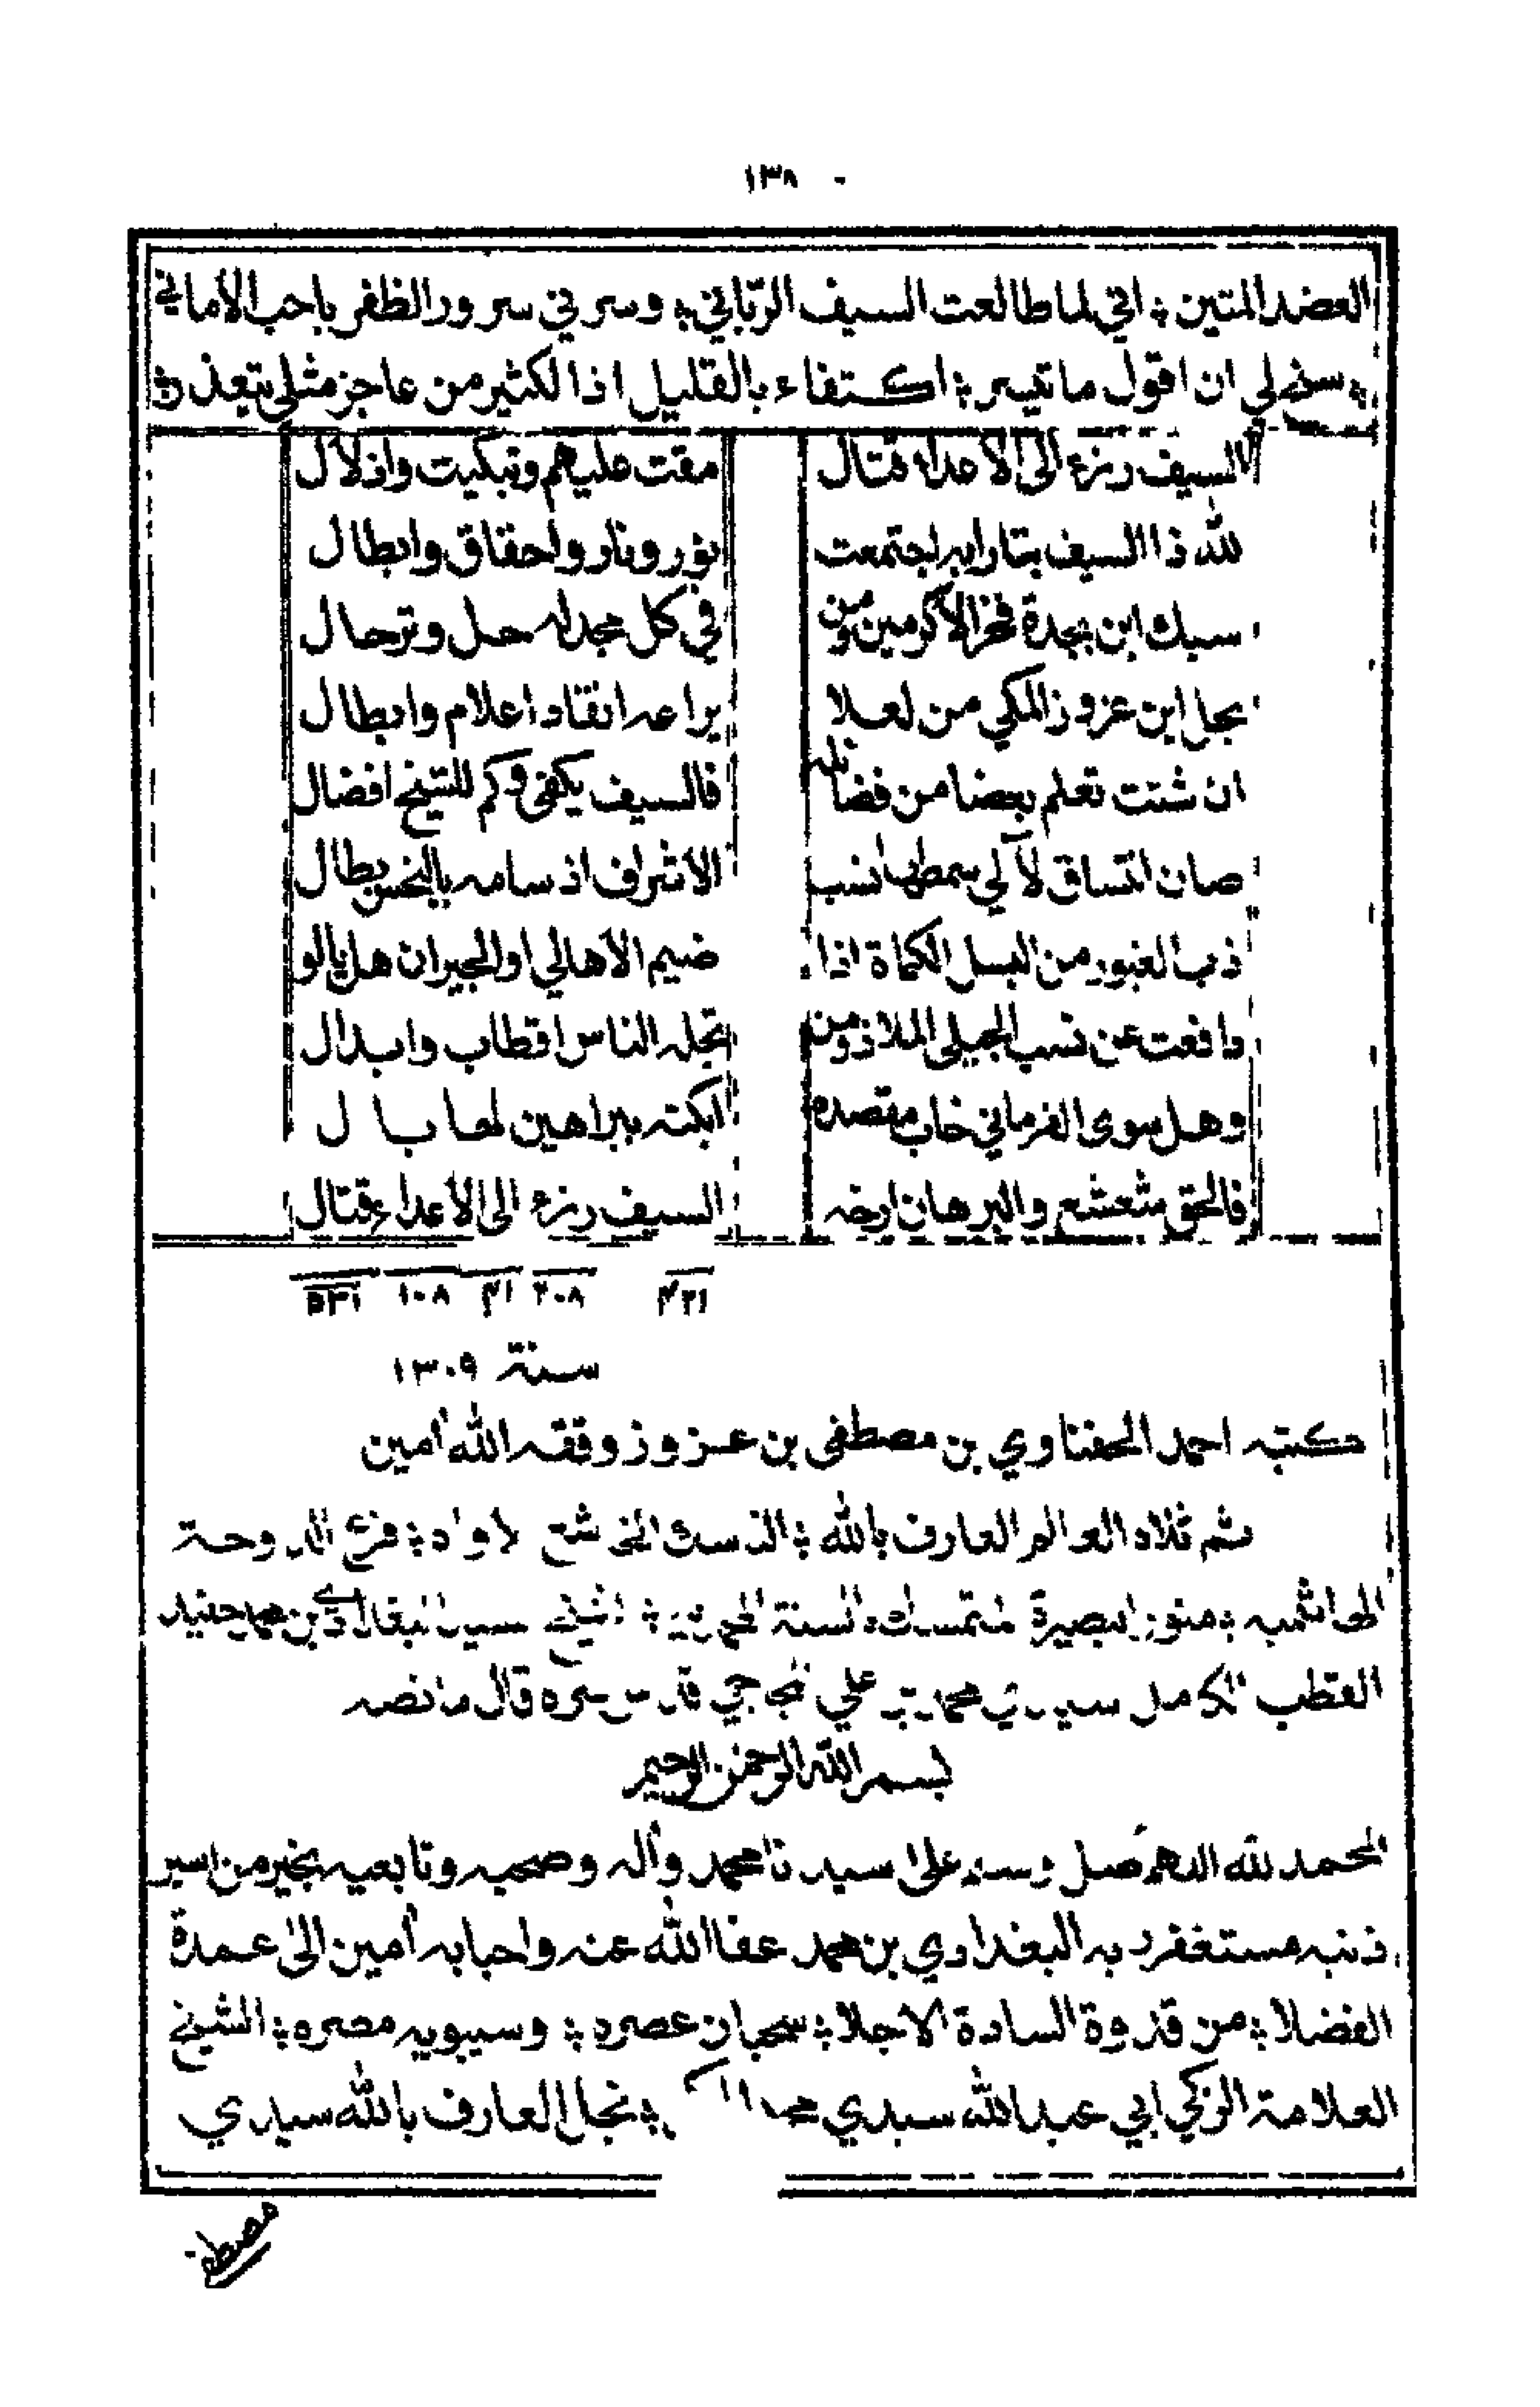 ١٣٨
العضد المتين ؛ اني لما طالعت السيف الرباني ؛ وسرني سرور الظفر باحب الأماني
؛ سنح لي ان اقول ما تيسر ؛ اكتفاء بالقليل اذ الكثير من عاجز مثلي يتعذر ؛
السيف رزء الى الأعداء قتال مقت عليهم وتبكيت واذلال
لله ذا السيف بتارا به اجتمعت نور ونار واحقاق وابطال
سبك ابن بجدة فخر الأكرمين ومن في كل مجد له حل وترحال
نجل ابن عزوز المكي من لعلا يراعه انقاد اعلام وابطال
ان شئت تعلم بعضا من فضائله فالسيف يكفي وكم للشيخ افضال
صان اتساق لآلي سمطها نسب الأشراف اذ سامه بالبخس بطال
ذب الغيور من البسل الكماة اذا ضيم الأهالي او الجيران هل يالو
دافعت عن نسب الجيلي الملاذ ومن تجله الناس اقطاب وابدال
وهل سوى القرماني خاب مقصده ابكته ببراهين لها بال
فالحق مشعشع والبرهان ارخه السيف رزء الى الأعداء قتال
٢٠٨ ٤١ ١٠٨ ٥٣١
سنة ١٣٠٩
كتبه احمد الحفناوي بن مصطفى بن عزوز وفقه الله أمين
ثم تلاه العالم العارف بالله ؛ الناسك الخاشع الأواه ؛ فرع الدوحة
الهاشمية ؛ منور البصيرة المتمسك بالسنة المحمدية ؛ الشيخ سيدي البغدادي بن محمد حفيد
القطب الكامل سيدي محمد بن علي قدس سره قال ما نصه
بسم الله الرحمن الرحيم
الحمد لله اللهم صل وسلم على سيدنا محمد وأله وصحبه وتابعيه بخير من اسير
ذنبه مستغفر ربه البغدادي بن محمد عفا الله عنه واحبابه أمين الى عمدة
الفضلا ؛ من قدوة السادة الاجلا ؛ سحبان عصره ؛ وسيبويه مصره ؛ الشيخ
العلامة الزكي ابي عبد الله سيدي محمد ؛ نجل العارف بالله سيدي
مصطفى